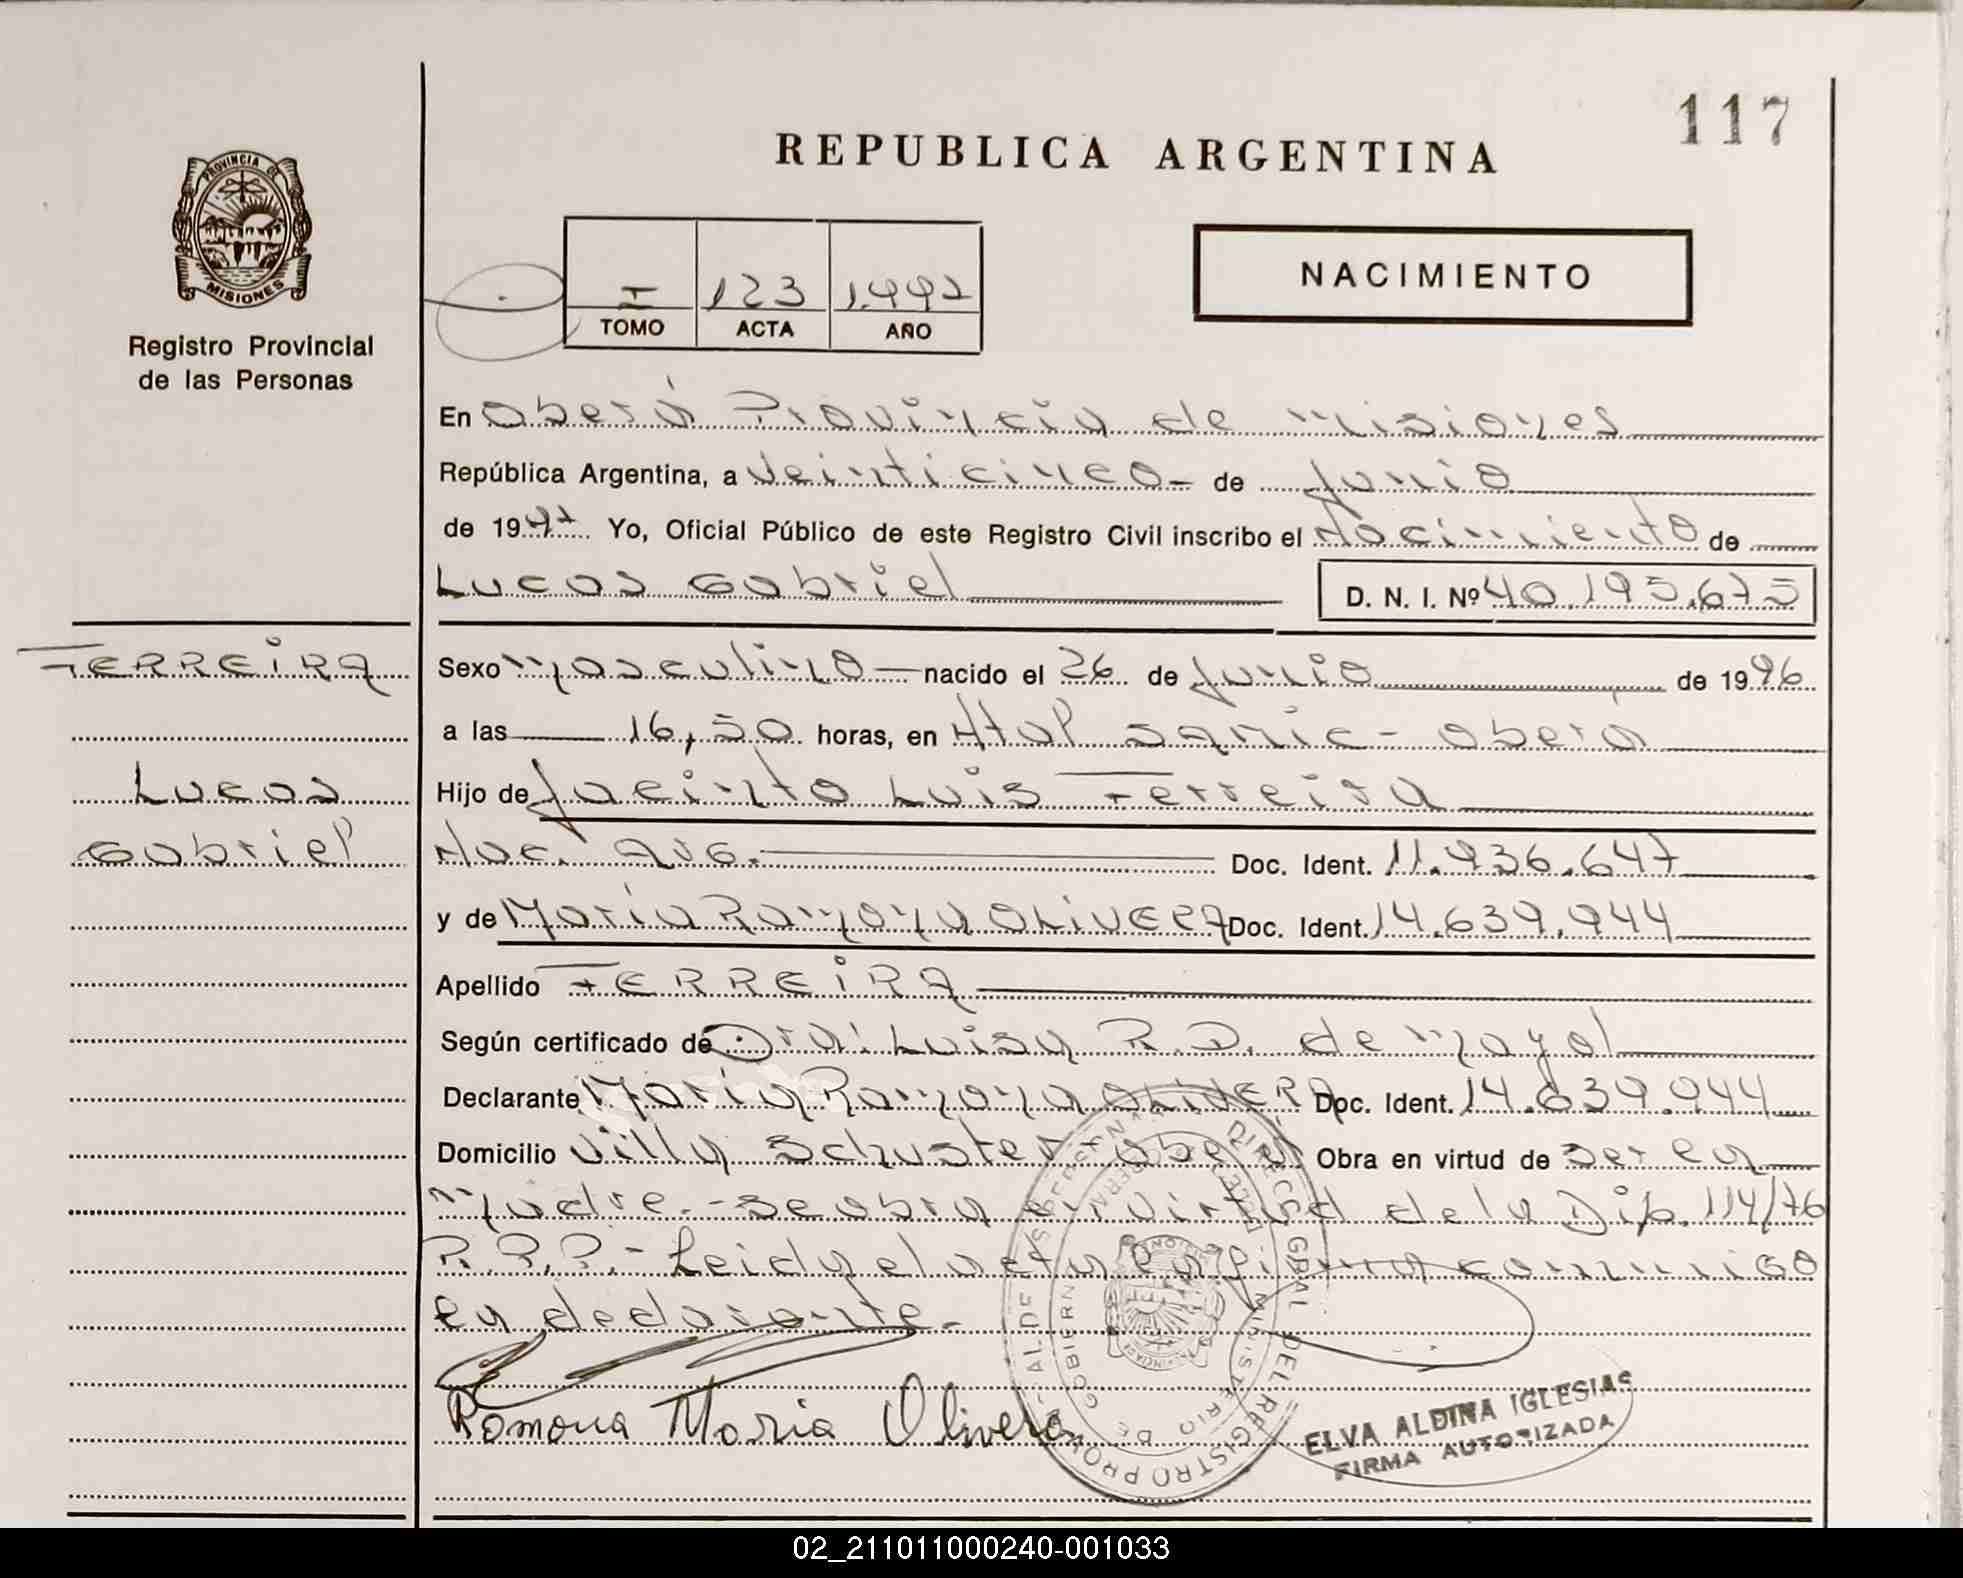 117
REPUBLICA ARGENTINA
PROVINCIA DE
MISIONES
Registro Provincial
de las Personas
NACIMIENTO
I 123 1.997
TOMO ACTA AÑO
En Oberá Provincia de Misiones
República Argentina, a Veinticinco - de Junio
de 1997 Yo, Oficial Público de este Registro Civil inscribo el Nacimiento de
Lucas Gabriel D. N. I. Nº 40.195.675
FERREIRA
Sexo Masculino nacido el 26 de Junio de 1996
a las 16,50 horas, en Htal Samic - Oberá
Lucas
Hijo de Jacinto Luis Ferreira
Gabriel
Nac. Arg. Doc. Ident. 11.936.647
y de María Ramona OLIVERA Doc. Ident. 14.639.944
Apellido FERREIRA
Según certificado de Dra: Luisa R. D. de Mayol
Declarante María Ramona OLIVERA Doc. Ident. 14.639.944
Domicilio Villa Schuster Oberá Obra en virtud de ser la
Madre. - Se obra en virtud de la Dip. 114/76
R.P.P. - Leida el acta la firma conmigo
la declarante. -
Ramona Maria Olivera
ELVA ALDINA IGLESIAS
FIRMA AUTORIZADA
02_211011000240-001033